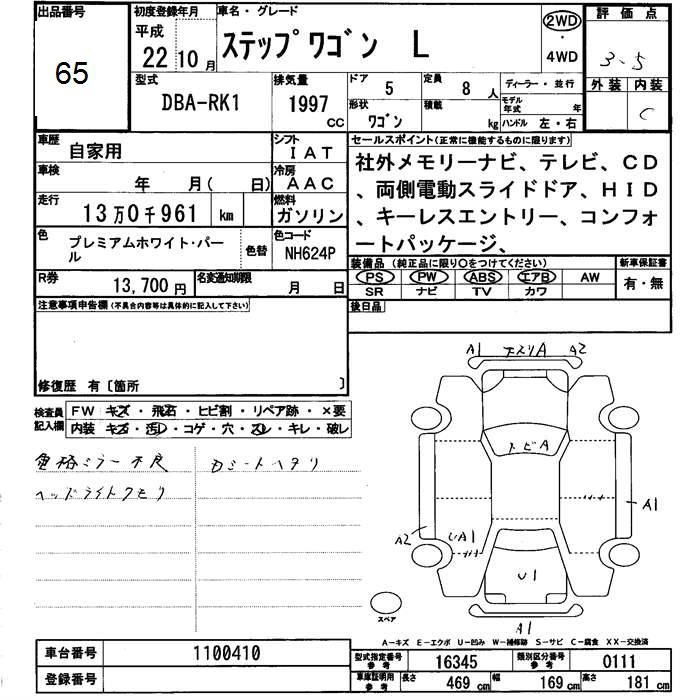 出品番号
65
初度登録年月
平成
22年10月
車名・グレード
ステップワゴン L
2WD
・
4WD
評価点
3.5
外装 内装
C
型式
DBA-RK1
排気量
1997 CC
ドア 5
定員 8 人
形状 ワゴン
積載 kg
ディーラー・並行
モデル年式 年
ハンドル 左・右
車歴 自家用
シフト IAT
車検 年 月( 日)
冷房 AAC
走行 13万0千961 km
燃料 ガソリン
色 プレミアムホワイト・パール
色替
色コード NH624P
R券 13,700円
名変通知期限 月 日
セールスポイント(正常に機能するものに限ります)
社外メモリーナビ、テレビ、CD
、両側電動スライドドア、HID
、キーレスエントリー、コンフォ
ートパッケージ、
装備品 (純正品に限り〇をつけてください)
PS PW ABS エアB AW
SR ナビ TV カワ
新車保証書
有・無
後日品
注意事項申告欄(不具合内容等は具体的に記入して下さい)
修復歴 有〔箇所 〕
検査員記入欄
FW キズ・飛石・ヒビ割・リペア跡・×要
内装 キズ・汚レ・コゲ・穴・スレ・キレ・破レ
ミラー不良
シートヘタリ
ヘッドライトクモリ
A1 A2
トビA
A1
A2
UA1
U1
A1
スペア
A-キズ E-エクボ U-凹み W-補修跡 S-サビ C-腐食 XX-交換済
車台番号 1100410
登録番号
型式指定番号参考 16345
類別区分番号参考 0111
車庫証明用参考 長さ 469 cm 幅 169 cm 高さ 181 cm